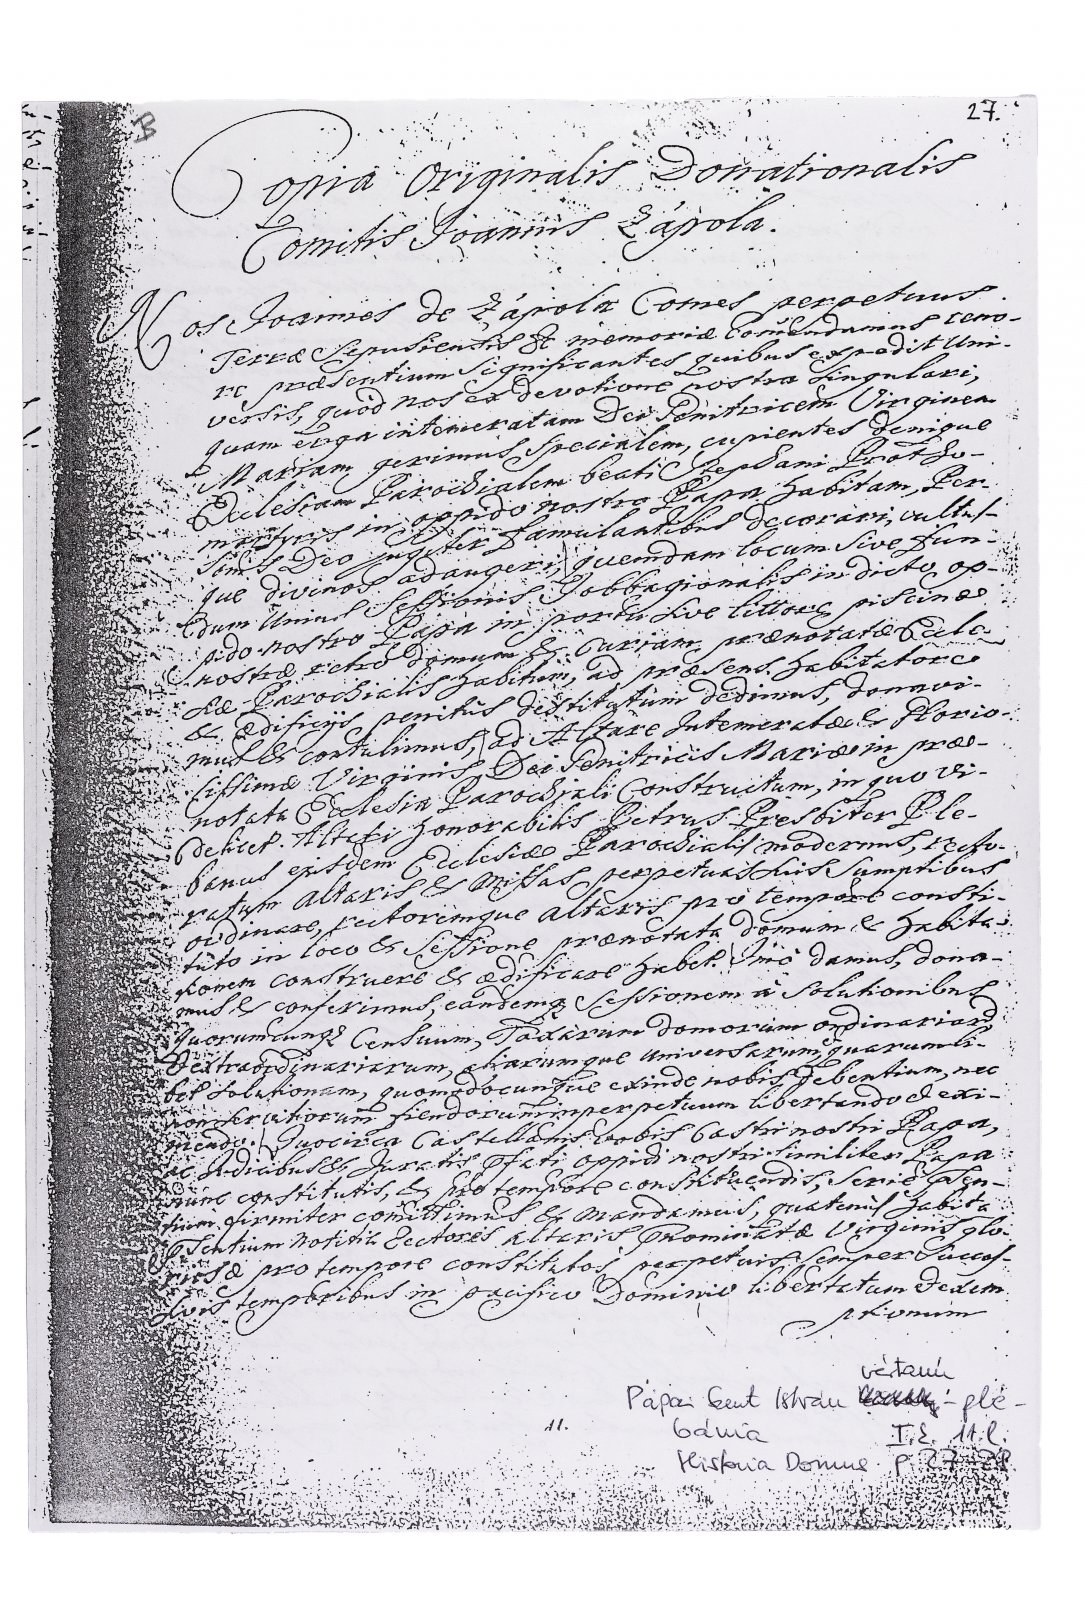 B
27.
Copia Originalis Donationalis
Comitis Joannis Zápola.
Nos Joannes de Zápola Comes perpetuus
Terræ Sepusiensis &c memoriæ comendamus teno-
re præsentium significantes quibus expedit Uni-
versis, quòd nos ex devotione nostra singulari,
quam erga intemeratam Dei Genitricem Virginem
Mariam gerimus specialem, cupientes denique
Ecclesiam Parochialem beati Stephani Protho-
martyris in oppido nostro Papa habitam, Per
sonis Deo jugiter famulantibus decorari, cultus-
que divinos adaugeri, quemdam locum sive fun-
dum Unius Sessionis Jobbagionalis in dicto op-
pido nostro Papa in portu sive littore piscinæ
nostræ retro domum & Curiam prænotatæ Eccle-
siæ Parochialis habitum, ad præsens habitatore
& ædificijs penitus destitutum dedimus, donavi-
mus & contulimus, ad Altare Intemeratæ & Glorio-
sissimæ Virginis Dei Genitricis Mariæ in præ-
notata Ecclesia Parochiali Constructum, in quo vi-
delicet Altari honorabilis Petrus Presbiter Ple-
banus ejusdem Ecclesiæ Parochialis modernus, recto-
ratum Altaris & Missas perpetuas suis sumptibus
ordinare, rectoremque Altaris pro tempore consti-
tuto in loco & Sessione prænotata domum & habita-
tionem construere & ædificare habet. Imò damus, dona-
mus & conferimus, eandemq Sessionem à solutionibus
quorumcunq Censuum, Taxarum domorum ordinariarum
& extraordinariarum, aliarumque universarum quarumli-
bet solutionum, quomodocunque exinde nobis debentium, nec
non servitiorum fiendorum imperpetuum libertando & exi-
mendo. Quocirca Castellanis vobis Castri nostri Papa,
ac Judicibus & Juratis pfati oppidi nostri similiter Papa
nunc constitutis, & pro tempore constituendis, serie psen-
tium firmiter comittimus & mandamus, quatenus habita
psentium notitia rectores Altaris pnominatæ Virginis glo-
riosæ pro tempore constitutos perpetuis semper succes-
sivis temporibus in pacifico Dominio libertatum & exem
ptionum
11.
vértanú
Pápai Szent István - plé-
bánia I.E. 11.l.
Historia Domus p. 27-28